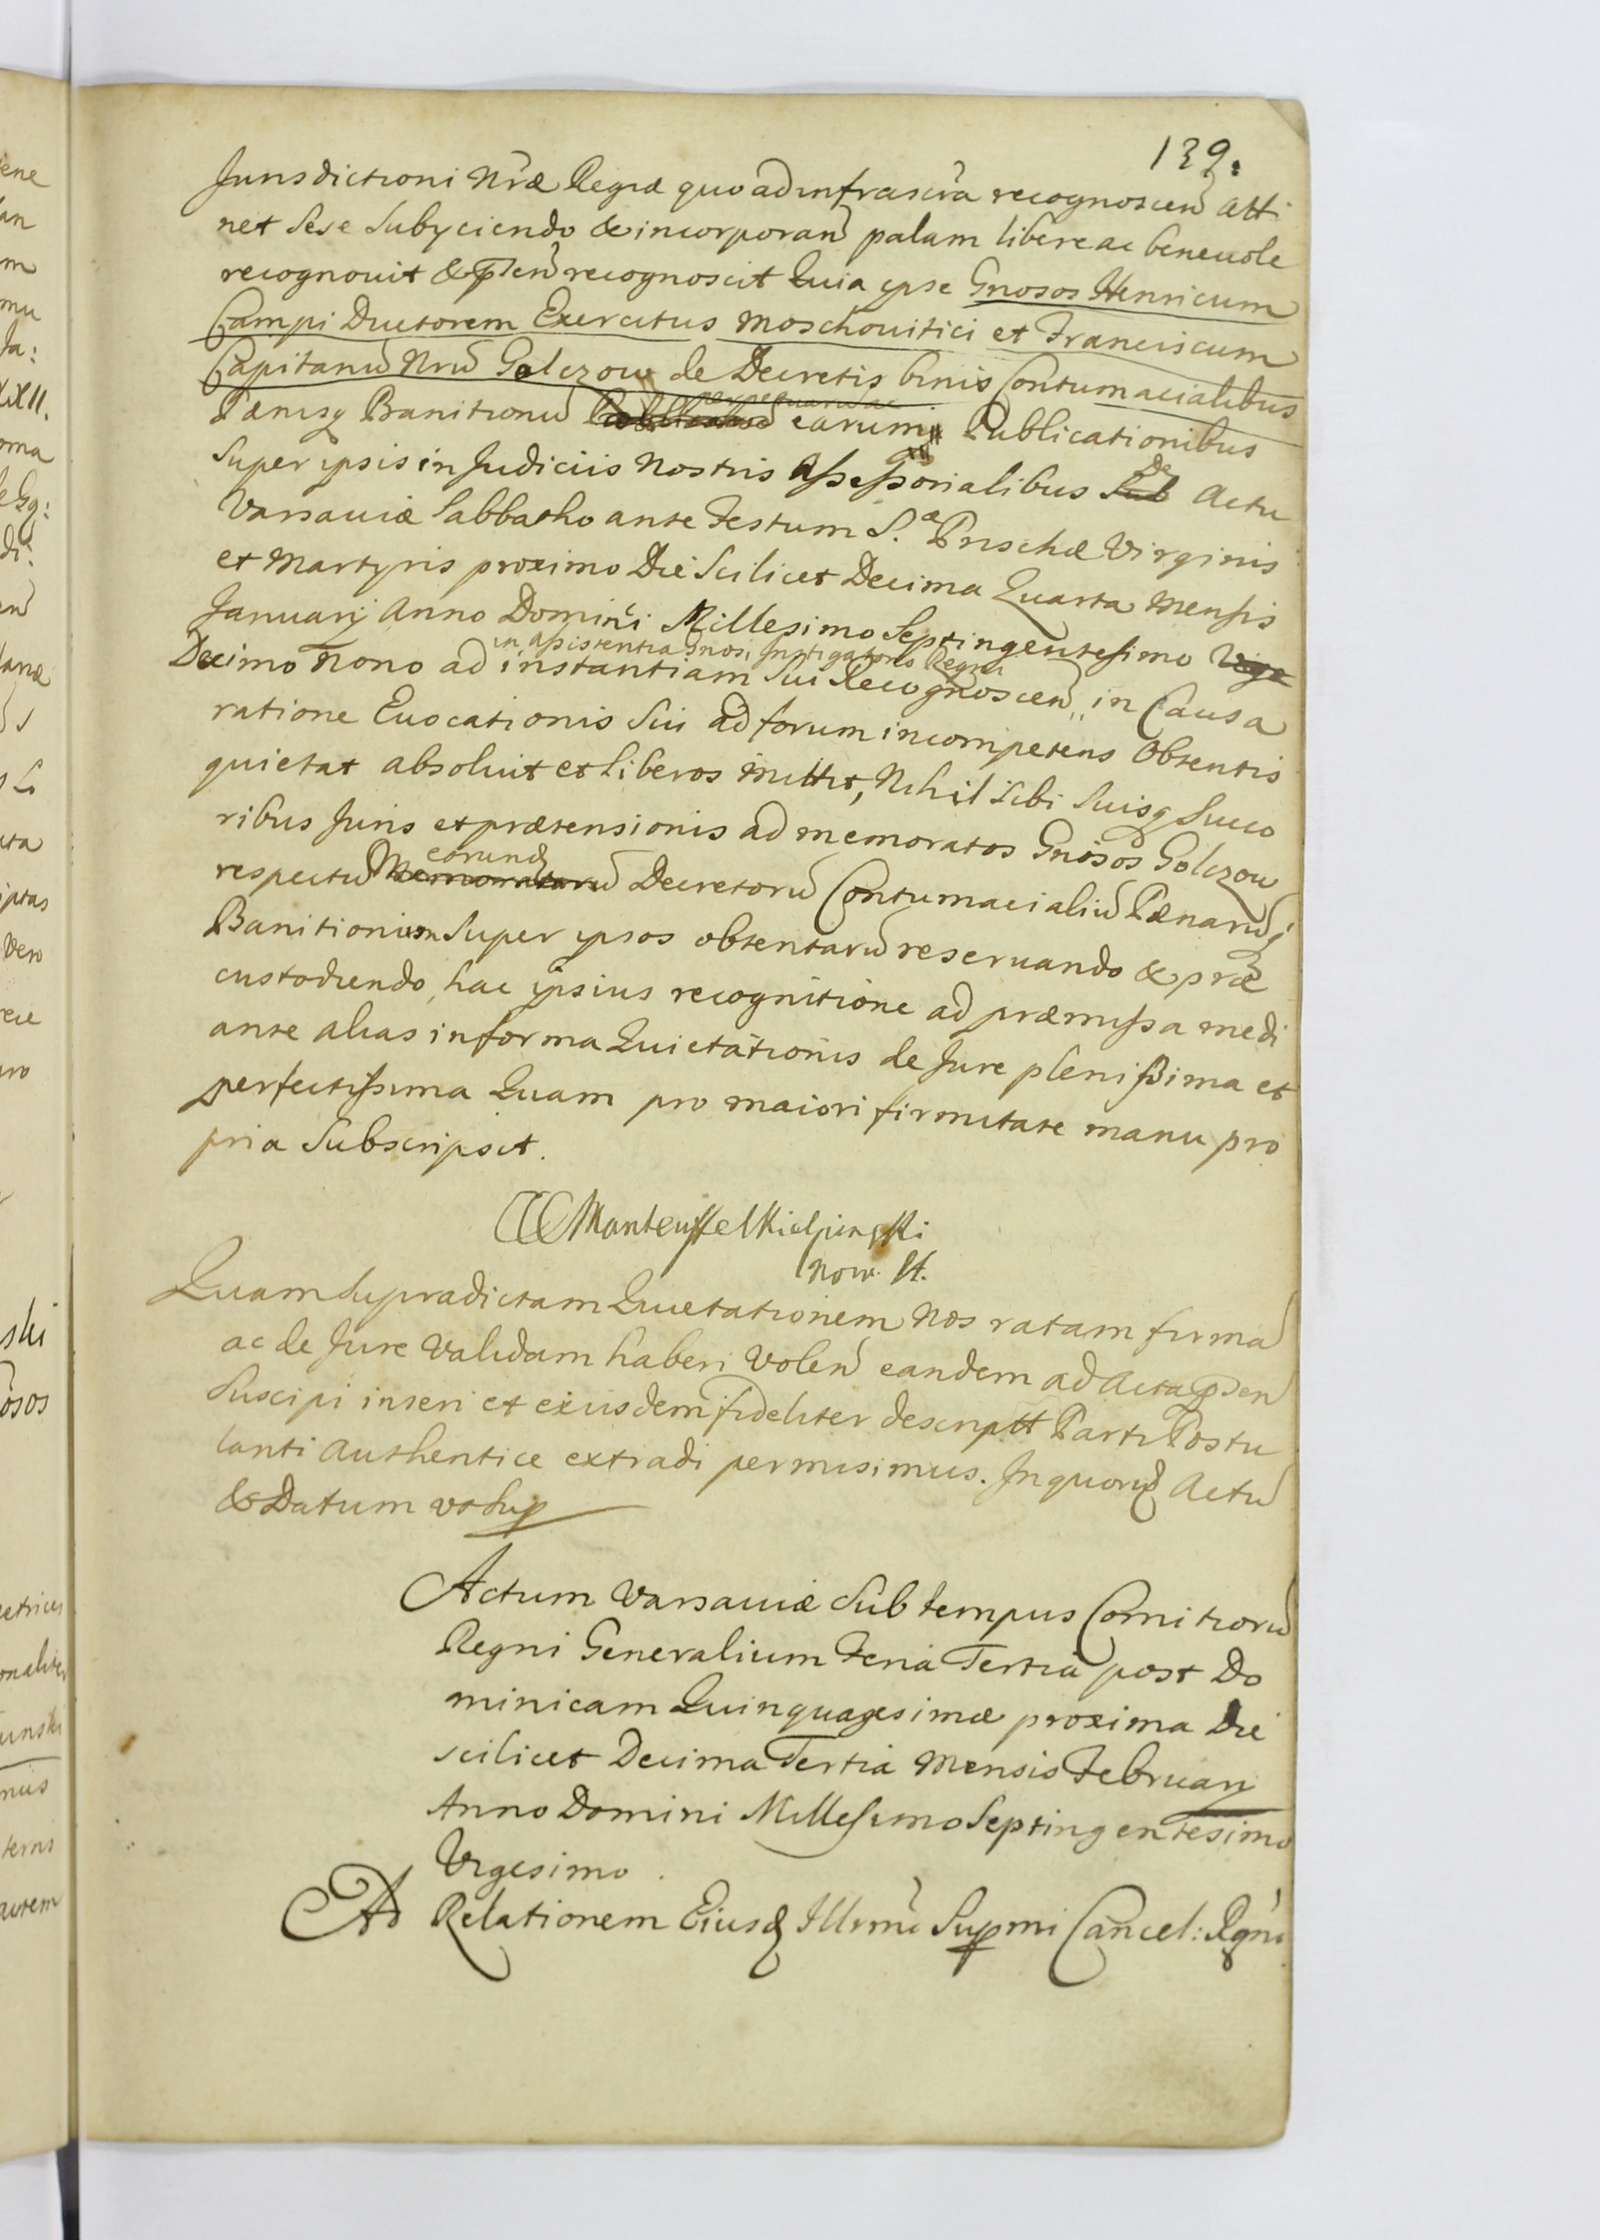 139.
Jurisdictioni Nr̃æ Regiæ quo ad infrascr̃a recognoscen̄ atti
net sese subyciendo & incorporan̄ palam libere ac beneuole
recognouit & p̄sen̄ recognoscit Quia ipse Gnosos Henricum
Campi Ductorem Exercitus Moschouitici et Franciscum
Capitanū Nrū Golczow de Decretis binis Contumacialibus
Pænisq Banitionū earumq Publicationibus
super ipsis in Judiciis Nostris Assessorialibus Sub De Actu
Varsauiæ Sabbatho ante Festum S.æ Prischæ Virginis
et Martyris proximo Die Scilicet Decima Quarta Mensis
Januarij Anno Domini Millesimo Septingentesimo Vige
in assistentia Gnosi Instigatoris Regni
Decimo Nono ad instantiam sui Recognoscen̄ in Causa
ratione Euocationis sui ad forum incompetens Obtentis
quietat absoluit et liberos mittit, Nihil sibi suisq Succo
ribus Juris et prætensionis ad memoratos Gnosos Golczow
eorund
respectū Memoratorū Decretorū Contumacialiū Pænarūq
Banitionum super ipsos obtentarū reseruando & præ
custodiendo, hac ipsius recognitione ad præmissa medi
ante alias in forma Quietationis de Jure plenissima et
perfectissima Quam pro maiori firmitate manu pro
pria Subscripsit.
Manteuffel Kielpinski
Now. St.
Quam supradictam Quietationem Nos ratam firmā
ac de Jure Validam haberi Volen̄ eandem ad Acta p̄sen
suscipi inseri et eiusdem fideliter descriptt Parti Postu
lanti Authentice extradi permisimus. In quorū Actū
& Datum vt sup
Actum Varsauiæ Sub tempus Comitiorū
Regni Generalium Feria Tertia post Do
minicam Quinquagesimæ proxima Die
scilicet Decima Tertia Mensis Februarij
Anno Domini Millesimo Septingentesimo
Vigesimo.
Ad Relationem Eiusd Illrmi Supmi Cancel: Rgni